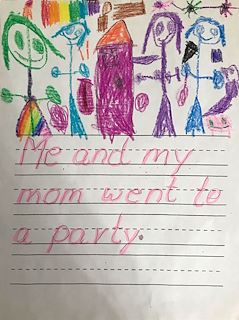 Me and my
mom went to
a party.